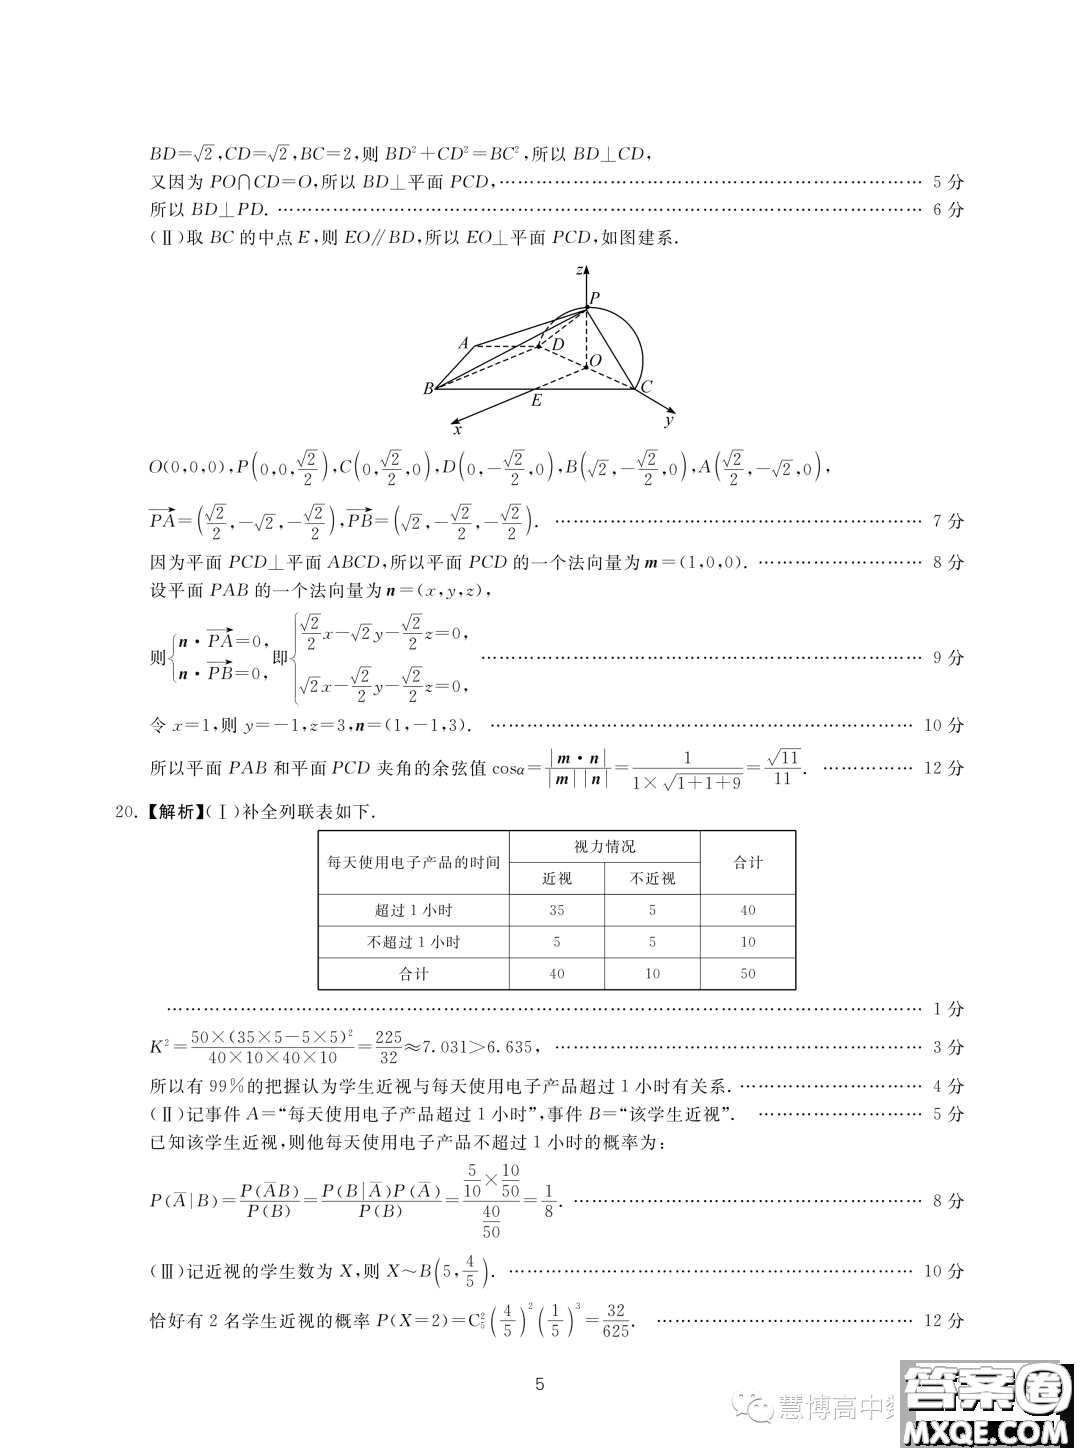 BD=√2,CD=√2,BC=2,则 BD²+CD²=BC²,所以 BD⊥CD,
又因为 PO∩CD=O,所以 BD⊥平面 PCD,…………………………………………………… 5 分
所以 BD⊥PD. …………………………………………………………………………… 6 分
(Ⅱ)取 BC 的中点 E,则 EO∥BD,所以 EO⊥平面 PCD,如图建系.
z
P
A
D
O
B
E
C
x
y
O(0,0,0),P(0,0,√2/2),C(0,√2/2,0),D(0,-√2/2,0),B(√2,-√2/2,0),A(√2/2,-√2,0),
PA→=(√2/2,-√2,-√2/2),PB→=(√2,-√2/2,-√2/2). …………………………………………… 7 分
因为平面 PCD⊥平面 ABCD,所以平面 PCD 的一个法向量为 m=(1,0,0). ……………………… 8 分
设平面 PAB 的一个法向量为 n=(x,y,z),
则{n·PA→=0, n·PB→=0, 即{√2/2x-√2y-√2/2z=0, √2x-√2/2y-√2/2z=0, …………………………………………… 9 分
令 x=1,则 y=-1,z=3,n=(1,-1,3). …………………………………………………… 10 分
所以平面 PAB 和平面 PCD 夹角的余弦值 cosα=|m·n|/|m||n|=1/(1×√1+1+9)=√11/11. …………… 12 分
20.【解析】(Ⅰ)补全列联表如下.
每天使用电子产品的时间 视力情况 合计
近视 不近视
超过 1 小时 35 5 40
不超过 1 小时 5 5 10
合计 40 10 50
…………………………………………………………………………………………… 1 分
K²=50×(35×5-5×5)²/(40×10×40×10)=225/32≈7.031>6.635, ……………………………………………… 3 分
所以有 99%的把握认为学生近视与每天使用电子产品超过 1 小时有关系. ………………………… 4 分
(Ⅱ)记事件 A=“每天使用电子产品超过 1 小时”,事件 B=“该学生近视”. ……………………… 5 分
已知该学生近视,则他每天使用电子产品不超过 1 小时的概率为:
P(A̅|B)=P(A̅B)/P(B)=P(B|A̅)P(A̅)/P(B)=(5/10×10/50)/(40/50)=1/8. …………………………………………… 8 分
(Ⅲ)记近视的学生数为 X,则 X~B(5,4/5). ……………………………………………………… 10 分
恰好有 2 名学生近视的概率 P(X=2)=C₅²(4/5)²(1/5)³=32/625. …………………………………… 12 分
5
慧博高中数
答案圈
MXQE.COM